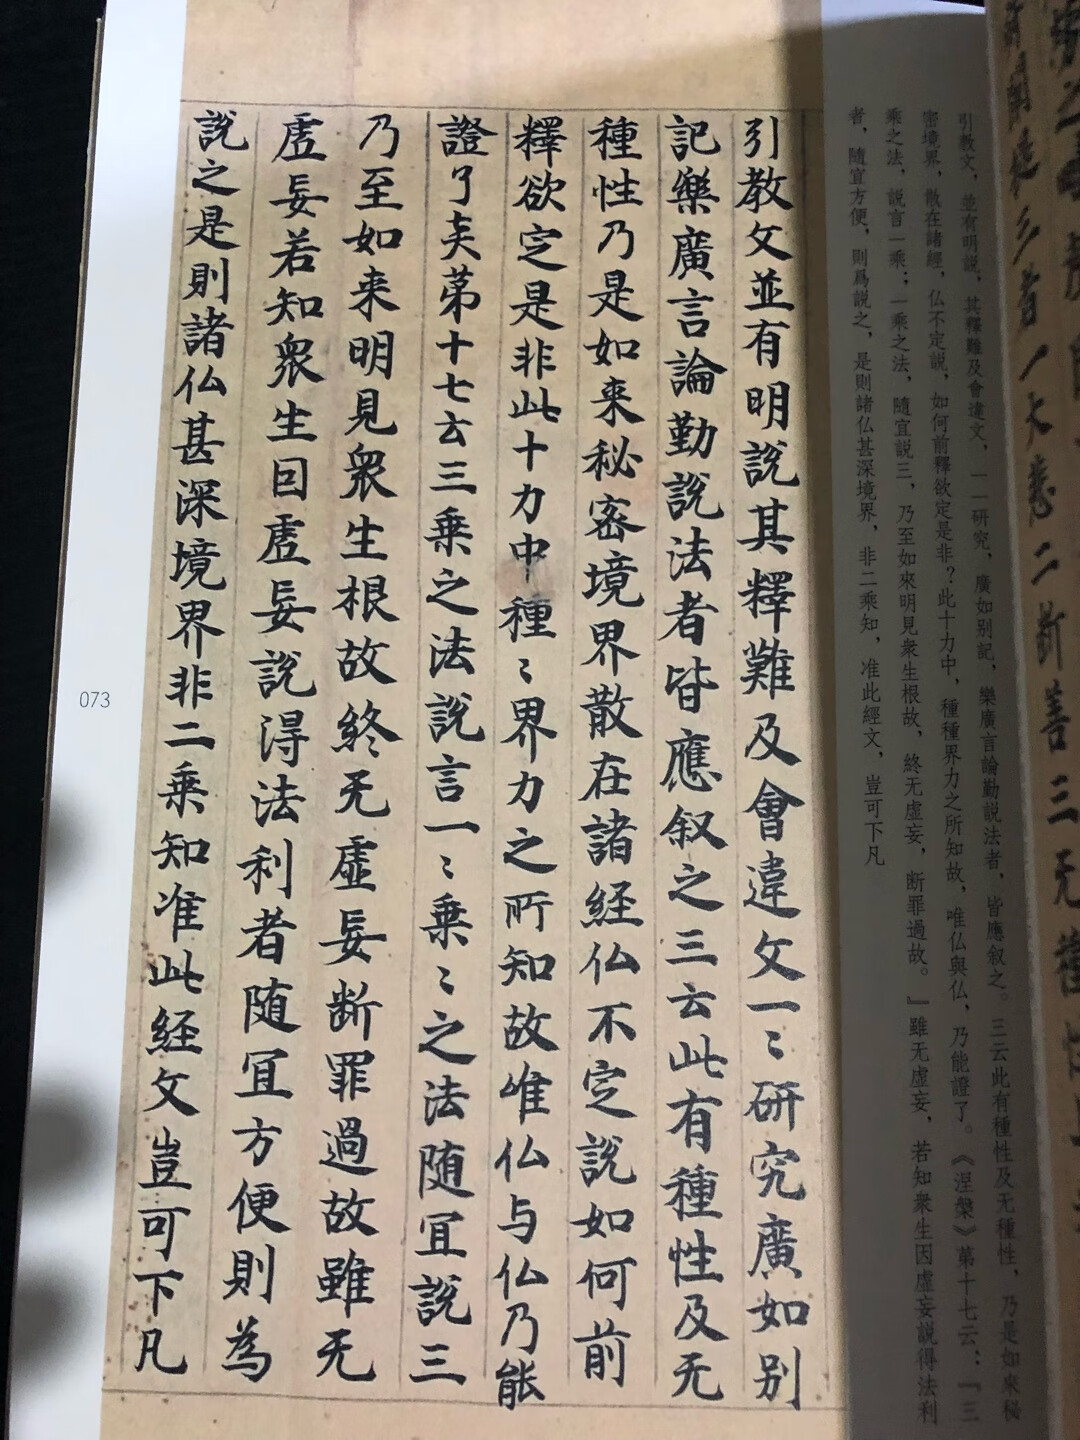 引教文並有明説其釋難及會違文一〻研究廣如别
記樂廣言論勤説法者皆應叙之三云此有種性及无
種性乃是如来秘密境界散在諸経仏不定説如何前
釋欲定是非此十力中種〻界力之所知故唯仏与仏乃能
證了夾苐十七云三乗之法説言一〻乗〻之法随宜説三
乃至如来明見衆生根故終无虚妄断罪過故雖无
虚妄若知衆生因虚妄説得法利者随宜方便則為
説之是則諸仏甚深境界非二乗知准此経文豈可下凡
引教文，並有明説，其釋難及會違文，一一研究，廣如别記，樂廣言論勤説法者，皆應叙之。三云此有種性及无種性，乃是如來秘
密境界，散在諸經，仏不定説，如何前釋欲定是非？此十力中，種種界力之所知故，唯仏與仏，乃能證了。《涅槃》第十七云：「三
乘之法，説言一乘；一乘之法，隨宜説三，乃至如來明見衆生根故，終无虚妄，断罪過故。」雖无虚妄，若知衆生因虚妄説得法利
者，隨宜方便，則爲説之，是則諸仏甚深境界，非二乘知，准此經文，豈可下凡
073